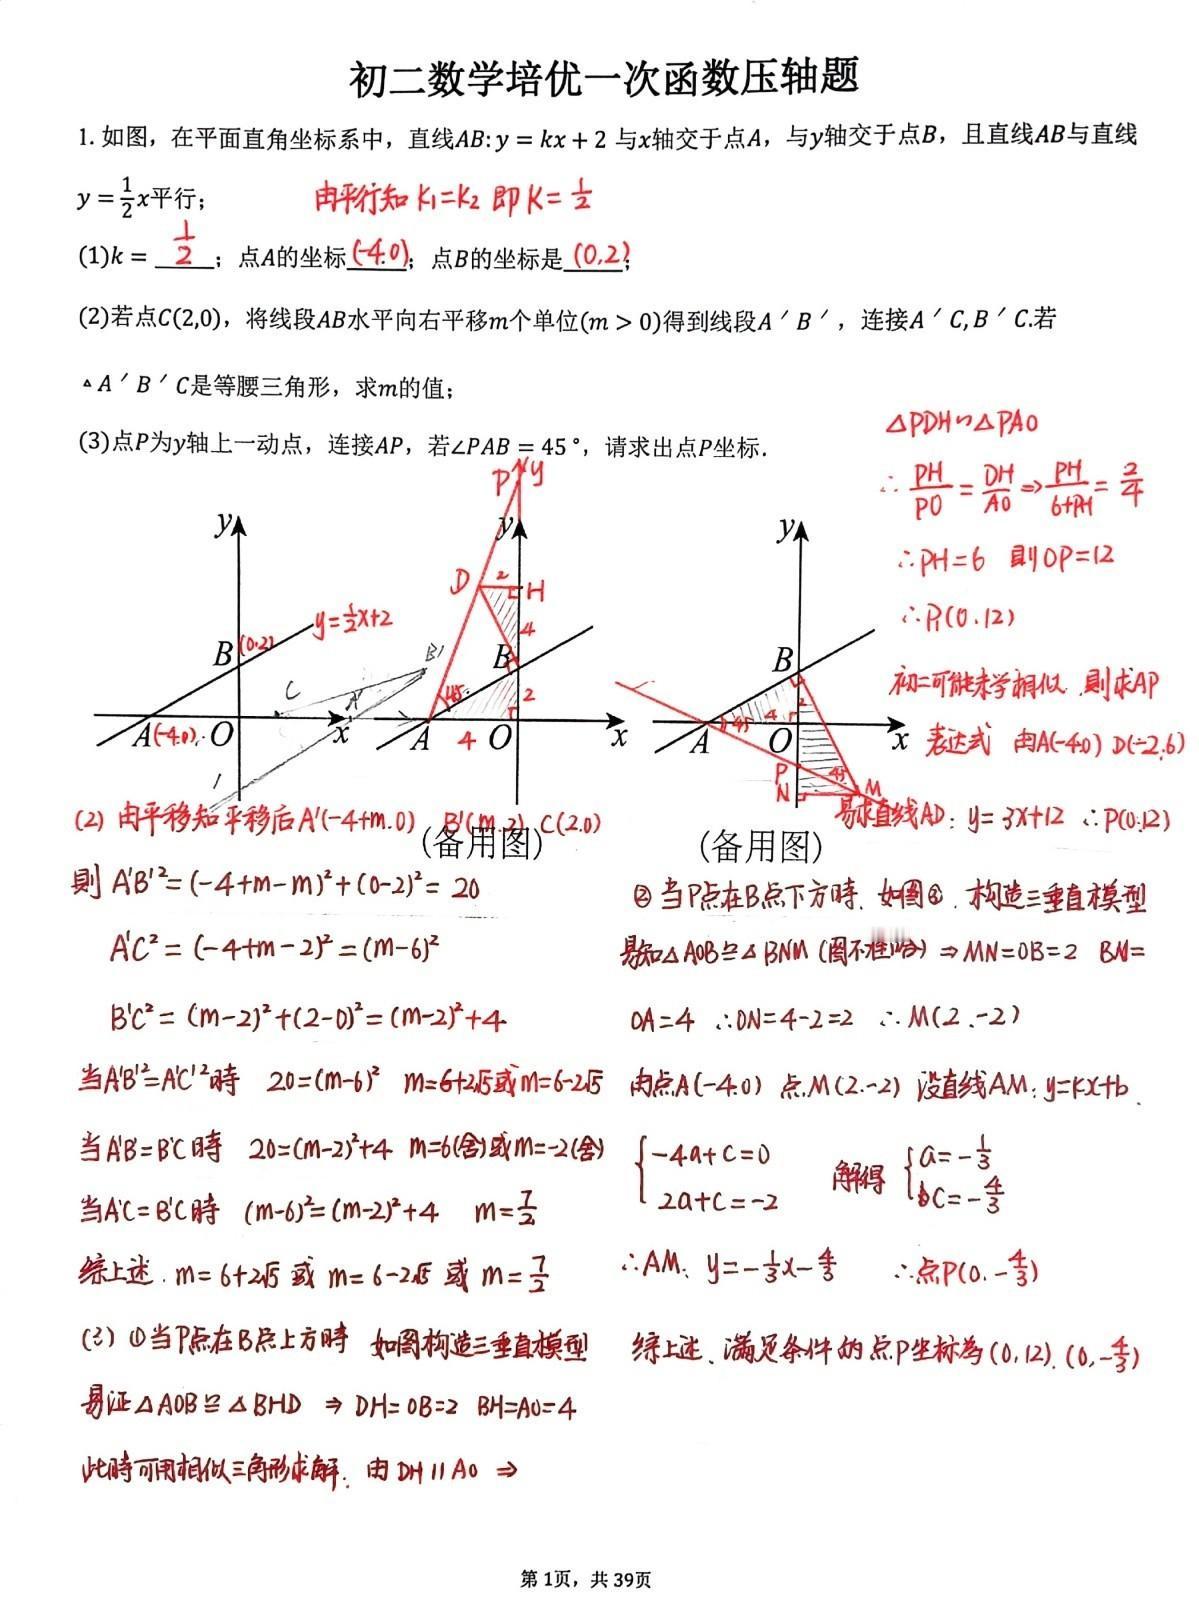 初二数学培优一次函数压轴题
1. 如图，在平面直角坐标系中，直线AB: y = kx + 2 与x轴交于点A，与y轴交于点B，且直线AB与直线
y = 1/2 x平行；
由平行知 K₁=K₂ 即 K = 1/2
(1)k = 1/2 ；点A的坐标(-4.0)；点B的坐标是(0,2)；
(2)若点C(2,0)，将线段AB水平向右平移m个单位(m > 0)得到线段A ′ B ′ ，连接A ′ C, B ′ C.若
△ A ′ B ′ C是等腰三角形，求m的值；
(3)点P为y轴上一动点，连接AP，若∠PAB = 45 °，请求出点P坐标.
△PDH∽△PAO
∴ PH/PO = DH/AO ⇒ PH/6+PH = 2/4
∴PH=6 则OP=12
∴P₁(0.12)
初二可能未学相似.则求AP
表达式 由A(-4.0) D(-2.6)
易求直线AD: y=3x+12 ∴P(0.12)
y
B
(0.2)
y=1/2x+2
C
A'
B'
A
(-4.0)
O
x
P
y
y
D
2
H
4
B
45°
2
A
4
O
x
y
B
45
4
2
A
O
x
P
45
N
M
(备用图)
(备用图)
(2) 由平移知平移后A'(-4+m.0) B'(m.2) C(2.0)
则 A'B'²=(-4+m-m)²+(0-2)²= 20
A'C² = (-4+m-2)² = (m-6)²
B'C² = (m-2)²+(2-0)² = (m-2)²+4
当A'B'²=A'C'²时 20=(m-6)² m=6+2√5或m=6-2√5
当A'B'=B'C时 20=(m-2)²+4 m=6(舍)或m=-2(舍)
当A'C=B'C时 (m-6)²=(m-2)²+4 m=7/2
综上述. m=6+2√5 或 m=6-2√5 或 m=7/2
(3) ①当P点在B点上方时 如图构造三垂直模型
易证△AOB≌△BHD ⇒ DH=OB=2 BH=AO=4
此时可用相似三角形求解. 由DH∥AO ⇒
②当P点在B点下方时. 如图②. 构造三垂直模型
易知△AOB≌△BNM (图不准哈) ⇒ MN=OB=2 BN=
OA=4 ∴ON=4-2=2 ∴M(2.-2)
由点A(-4.0) 点M(2.-2) 设直线AM: y=kx+b.
{-4a+c=0 2a+c=-2 解得 {a=-1/3 c=-4/3
∴AM: y=-1/3x-4/3 ∴点P(0.-4/3)
综上述、满足条件的点P坐标为(0,12).(0,-4/3)
第 1页，共 39页